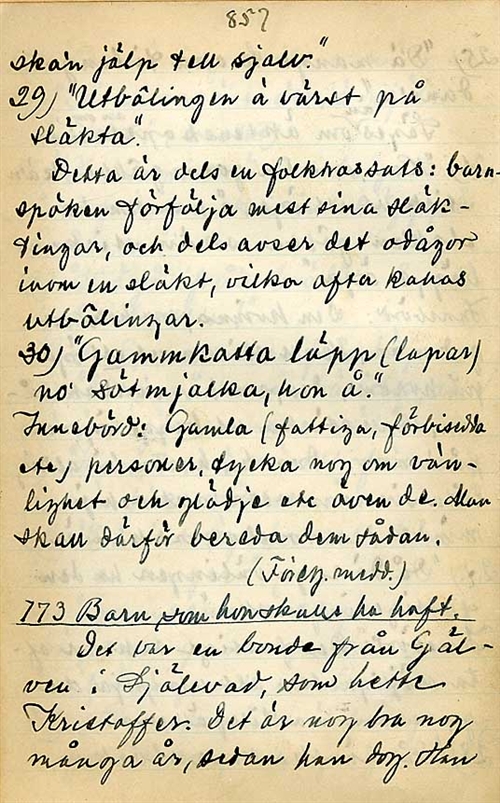 857
ska'n jälp tell sjalv."
29) "Utbôlingen å värst på
släkta".
Detta är dels en folktrossats: barn-
spöken förfölja mest sina släk-
tingar, och dels avser det odågor
inom en släkt, vilka ofta kallas
utbôlingar.
30) "Gammkatta läpp (lapar)
no' sötmjalka, hon å."
Innebörd: Gamla (fattiga, förbisedda
etc) personer, tycka nog om vän-
lighet och glädje etc även de. Man
skall därför bereda dem sådan.
(Föreg. medd.)
173 Barn, som hon skulle ha haft.
Det var en bonde från Gäl-
ven i Själevad, som hette
Kristoffer. Det är nog bra nog
många år, sedan han dog. Han